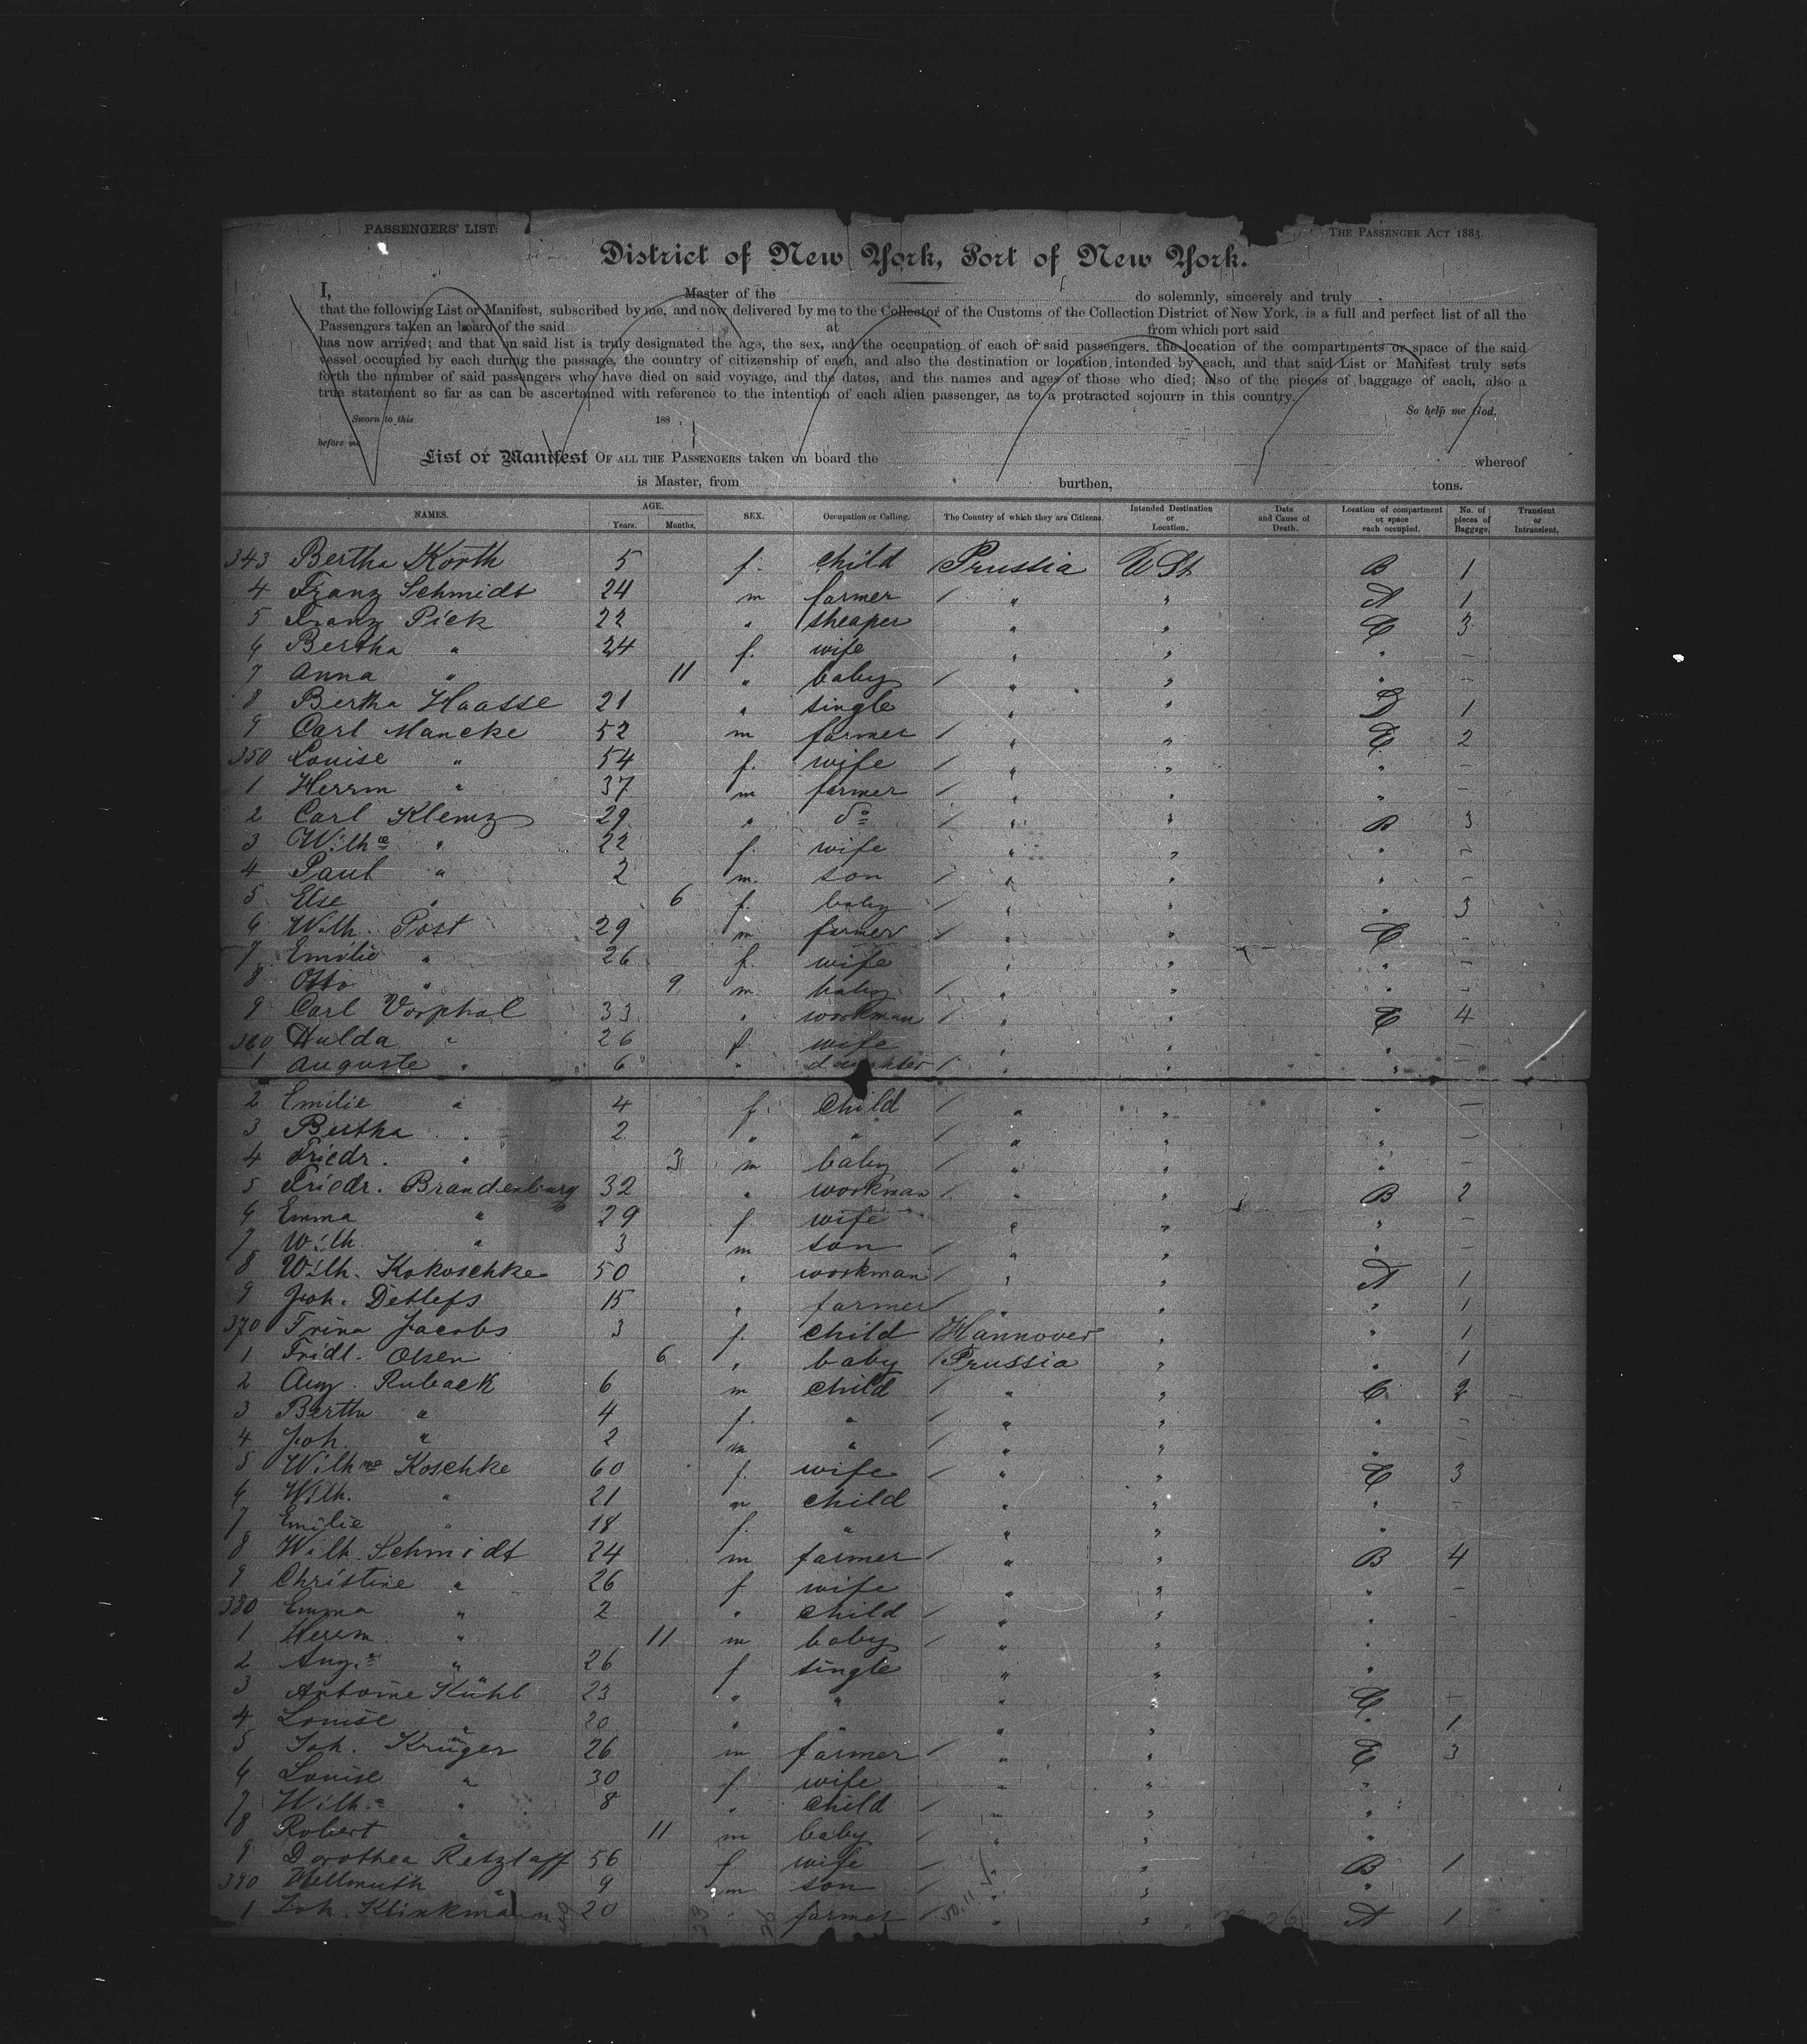 PASSENGERS' LIST. THE PASSENGER ACT 1883.
District of New York, Port of New York.
I, Master of the do solemnly, sincerely and truly
that the following List or Manifest, subscribed by me, and now delivered by me to the Collector of the Customs of the Collection District of New York, is a full and perfect list of all the
Passengers taken an board of the said at from which port said
has now arrived; and that on said list is truly designated the age, the sex, and the occupation of each of said passengers, the location of the compartments or space of the said
vessel occupied by each during the passage, the country of citizenship of each, and also the destination or location intended by each, and that said List or Manifest truly sets
forth the number of said passengers who have died on said voyage, and the dates, and the names and ages of those who died; also of the pieces of baggage of each, also a
true statement so far as can be ascertained with reference to the intention of each alien passenger, as to a protracted sojourn in this country.
So help me God,
Sworn to this 188
before me
List or Manifest OF ALL THE PASSENGERS taken on board the whereof
is Master, from burthen, tons.
NAMES. AGE. Years. Months. SEX. Occupation or Calling. The Country of which they are Citizens. Intended Destination or Location. Date and Cause of Death. Location of compartment or space each occupied. No. of pieces of Baggage. Transient or Intransient.
343 Bertha Korth 5 f. child Prussia U St B 1
4 Franz Schmidt 24 m farmer " " A 1
5 Franz Piek 22 " sheaper " " C 3
6 Bertha " 24 f. wife " " " –
7 Anna " 11 " baby " " " –
8 Bertha Haasse 21 " single " " D 1
9 Carl Mancke 52 m farmer " " C 2
350 Louise " 54 f. wife " " " –
1 Herrm " 37 m farmer " " " –
2 Carl Klemz 29 " do " " B 3
3 Wilhe " 22 f. wife " " " –
4 Paul " 2 m. son " " " –
5 Else " 6 f. baby " " " 3
6 Wilh. Post 29 m farmer " " C –
7 Emilie " 26 f. wife " " " –
8 Otto " 9 m. baby " " " –
9 Carl Vorphal 33 " workman " " C 4
360 Hulda " 26 f. wife " " " –
1 Auguste " 6 " daughter " " " –
2 Emilie " 4 f. child " " " –
3 Bertha " 2 " " " " " –
4 Friedr. " 3 m baby " " " –
5 Friedr. Brandenburg 32 " workman " " B 2
6 Emma " 29 f. wife " " " –
7 Wilh. " 3 m son " " " –
8 Wilh. Kokoschke 50 " workman " " A 1
9 Joh. Detlefs 15 " farmer " " " 1
370 Trina Jacobs 3 f. child Hannover " " 1
1 Fridl. Olsen 6 " baby Prussia " " 1
2 Aug. Ruback 6 m child " " C. 2
3 Bertha " 4 f. " " " " –
4 Joh. " 2 m " " " " –
5 Wilhme Koschke 60 f. wife " " C 3
6 Wilh. " 21 m child " " " –
7 Emilie " 18 f. " " " "
8 Wilh. Schmidt 24 m farmer " " B 4
9 Christine " 26 f wife " " " –
380 Emma " 2 " child " " " –
1 Herrm. " 11 m baby " " "
2 Auge " 26 f single " " "
3 Antoine Kühl 23 " " " " C –
4 Louise " 20 " " " " " 1
5 Joh. Krüger 26 m farmer " " C 3
6 Louise " 30 f wife " " "
7 Wilhe " 8 " child " " "
8 Robert " 11 m baby " " "
9 Dorothea Retzlaff 56 f wife " " B 1
390 Hellmuth " 9 m son " " "
1 Joh. Klinkmann 20 " farmer " " A 1